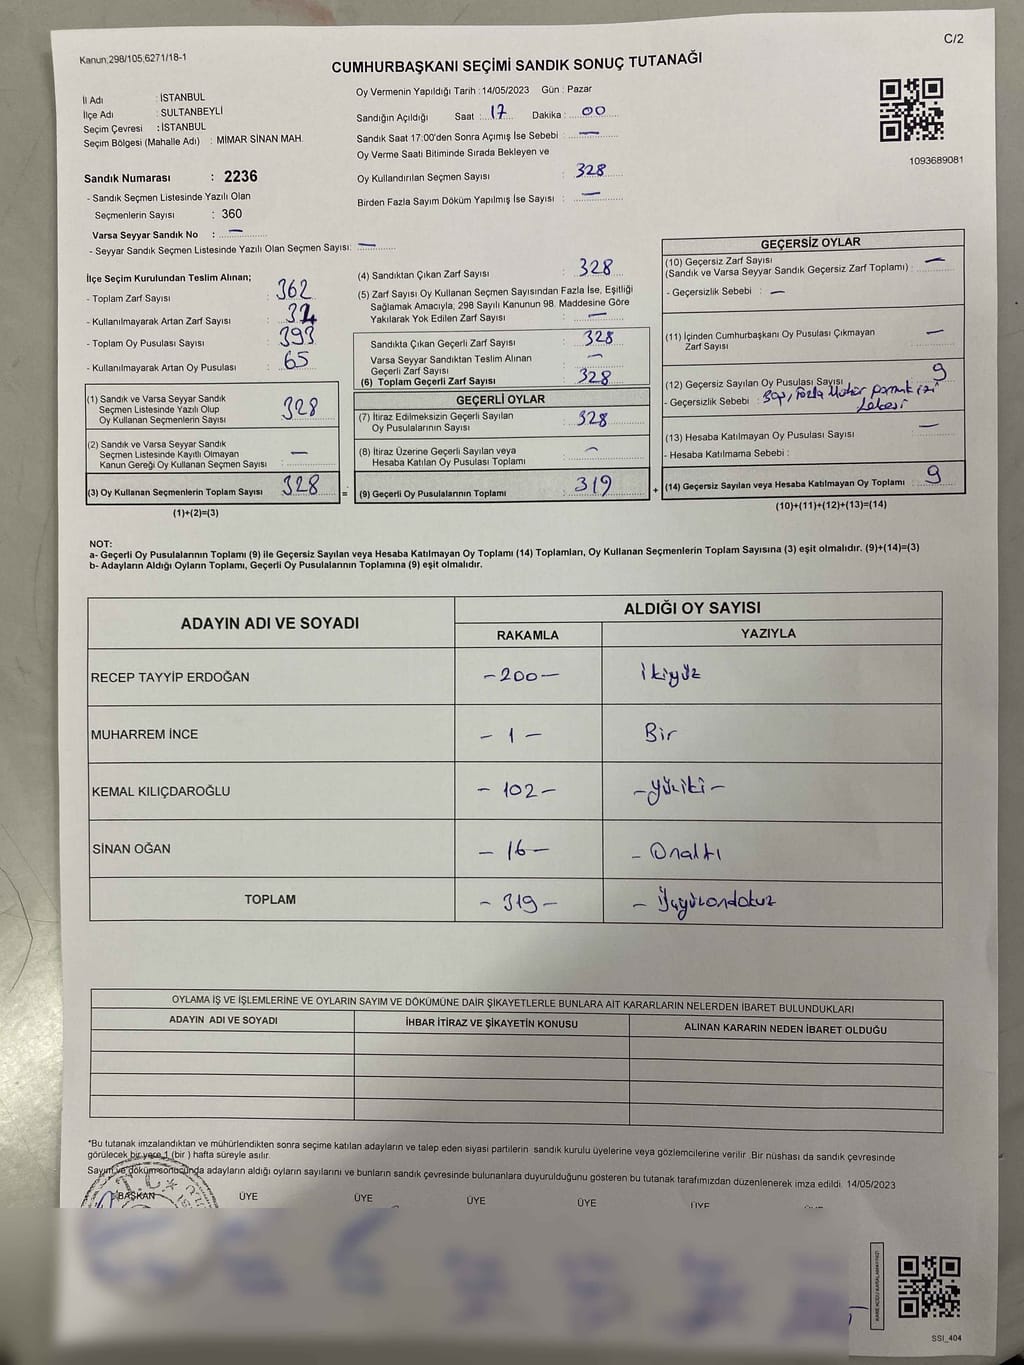 C/2
Kanun,298/105,6271/18-1
CUMHURBAŞKANI SEÇİMİ SANDIK SONUÇ TUTANAĞI
İl Adı : İSTANBUL
İlçe Adı : SULTANBEYLİ
Seçim Çevresi : İSTANBUL
Seçim Bölgesi (Mahalle Adı) : MİMAR SİNAN MAH.
Sandık Numarası : 2236
- Sandık Seçmen Listesinde Yazılı Olan
Seçmenlerin Sayısı : 360
Varsa Seyyar Sandık No : —
- Seyyar Sandık Seçmen Listesinde Yazılı Olan Seçmen Sayısı: —
Oy Vermenin Yapıldığı Tarih : 14/05/2023 Gün : Pazar
Sandığın Açıldığı Saat : 17 Dakika : 00
Sandık Saat 17:00'den Sonra Açımış İse Sebebi : —
Oy Verme Saati Bitiminde Sırada Bekleyen ve
Oy Kullandırılan Seçmen Sayısı : 328
Birden Fazla Sayım Döküm Yapılmış İse Sayısı : —
1093689081
İlçe Seçim Kurulundan Teslim Alınan;
- Toplam Zarf Sayısı : 362
- Kullanılmayarak Artan Zarf Sayısı :
- Toplam Oy Pusulası Sayısı : 393
- Kullanılmayarak Artan Oy Pusulası : 65
(1) Sandık ve Varsa Seyyar Sandık
Seçmen Listesinde Yazılı Olup
Oy Kullanan Seçmenlerin Sayısı : 328
(2) Sandık ve Varsa Seyyar Sandık
Seçmen Listesinde Kayıtlı Olmayan
Kanun Gereği Oy Kullanan Seçmen Sayısı : —
(3) Oy Kullanan Seçmenlerin Toplam Sayısı : 328
(1)+(2)=(3)
(4) Sandıktan Çıkan Zarf Sayısı : 328
(5) Zarf Sayısı Oy Kullanan Seçmen Sayısından Fazla İse, Eşitliği
Sağlamak Amacıyla, 298 Sayılı Kanunun 98. Maddesine Göre
Yakılarak Yok Edilen Zarf Sayısı : —
Sandıkta Çıkan Geçerli Zarf Sayısı : 328
Varsa Seyyar Sandıktan Teslim Alınan
Geçerli Zarf Sayısı : —
(6) Toplam Geçerli Zarf Sayısı : 328
GEÇERLİ OYLAR
(7) İtiraz Edilmeksizin Geçerli Sayılan
Oy Pusulalarının Sayısı : 328
(8) İtiraz Üzerine Geçerli Sayılan veya
Hesaba Katılan Oy Pusulası Toplamı : —
= (9) Geçerli Oy Pusulalarının Toplamı : 319
GEÇERSİZ OYLAR
(10) Geçersiz Zarf Sayısı
(Sandık ve Varsa Seyyar Sandık Geçersiz Zarf Toplamı) : —
- Geçersizlik Sebebi : —
(11) İçinden Cumhurbaşkanı Oy Pusulası Çıkmayan
Zarf Sayısı : —
(12) Geçersiz Sayılan Oy Pusulası Sayısı : 9
- Geçersizlik Sebebi : Boş, Fazla Mühür parmak izi
Lekesi
(13) Hesaba Katılmayan Oy Pusulası Sayısı : —
- Hesaba Katılmama Sebebi :
+ (14) Geçersiz Sayılan veya Hesaba Katılmayan Oy Toplamı : 9
(10)+(11)+(12)+(13)=(14)
NOT:
a- Geçerli Oy Pusulalarının Toplamı (9) ile Geçersiz Sayılan veya Hesaba Katılmayan Oy Toplamı (14) Toplamları, Oy Kullanan Seçmenlerin Toplam Sayısına (3) eşit olmalıdır. (9)+(14)=(3)
b- Adayların Aldığı Oyların Toplamı, Geçerli Oy Pusulalarının Toplamına (9) eşit olmalıdır.
ADAYIN ADI VE SOYADI ALDIĞI OY SAYISI
RAKAMLA YAZIYLA
RECEP TAYYİP ERDOĞAN -200- İkiyüz
MUHARREM İNCE -1- Bir
KEMAL KILIÇDAROĞLU -102- -Yüziki-
SİNAN OĞAN -16- -Onaltı
TOPLAM -319- -Üçyüzondokuz
OYLAMA İŞ VE İŞLEMLERİNE VE OYLARIN SAYIM VE DÖKÜMÜNE DAİR ŞİKAYETLERLE BUNLARA AİT KARARLARIN NELERDEN İBARET BULUNDUKLARI
ADAYIN ADI VE SOYADI İHBAR İTİRAZ VE ŞİKAYETİN KONUSU ALINAN KARARIN NEDEN İBARET OLDUĞU
*Bu tutanak imzalandıktan ve mühürlendikten sonra seçime katılan adayların ve talep eden siyasi partilerin sandık kurulu üyelerine veya gözlemcilerine verilir. Bir nüshası da sandık çevresinde
görülecek bir yere 1 (bir ) hafta süreyle asılır.
Sayım ve döküm sonucunda adayların aldığı oyların sayılarını ve bunların sandık çevresinde bulunanlara duyurulduğunu gösteren bu tutanak tarafımızdan düzenlenerek imza edildi. 14/05/2023
T.C.
BAŞKAN ÜYE ÜYE ÜYE ÜYE ÜYE
SSI_404